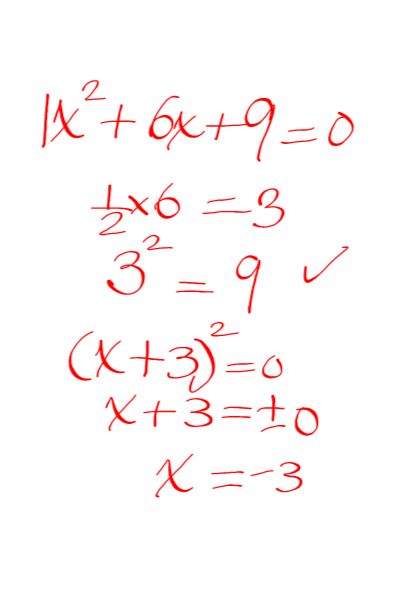 1x² + 6x + 9 = 0
½ × 6 = 3
3² = 9 ✓
(x + 3)² = 0
x + 3 = ± 0
x = -3